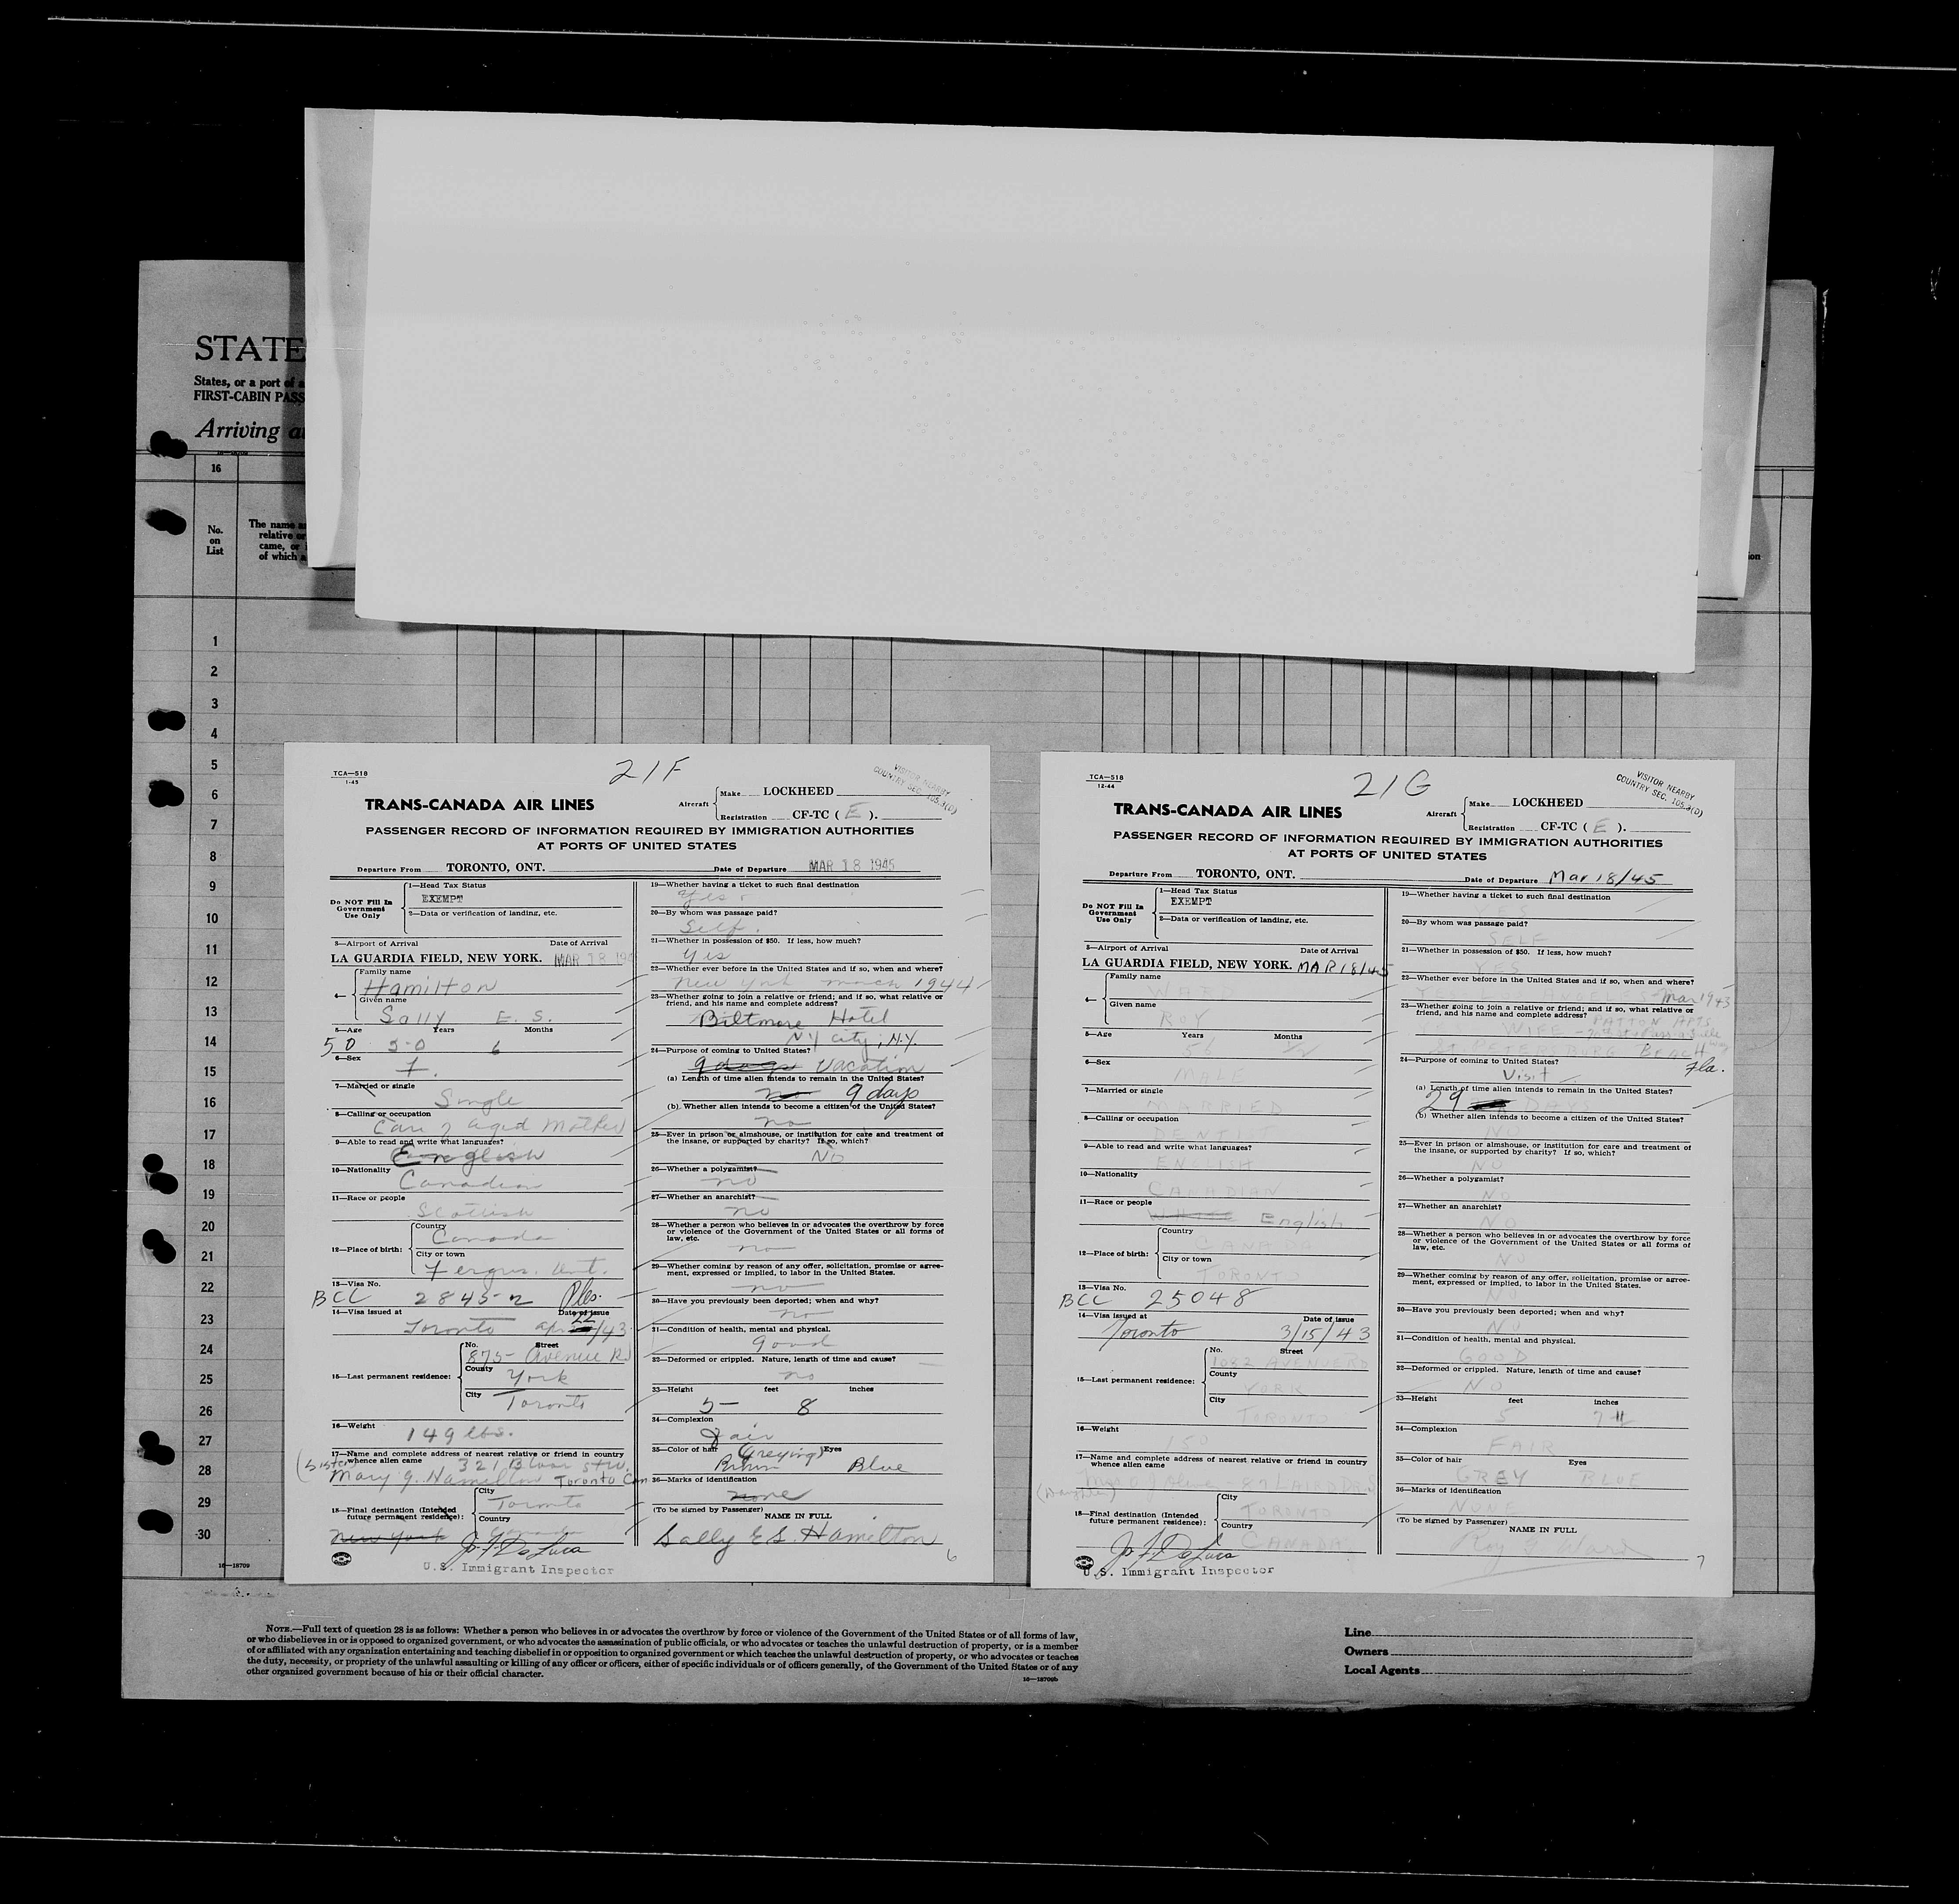 STATE
States, or a port of a
FIRST-CABIN PASS
Arriving a
16
No.
on
List
The name a
relative or
came, or i
of which a
ion
1
2
3
4
5
6
7
8
9
10
11
12
13
14
15
16
17
18
19
20
21
22
23
24
25
26
27
28
29
30
16—18709
TCA—518
1-45
21F
VISITOR NEARBY
COUNTRY SEC. 105.3(D)
TRANS-CANADA AIR LINES
Aircraft
Make LOCKHEED
Registration CF-TC ( E ).
PASSENGER RECORD OF INFORMATION REQUIRED BY IMMIGRATION AUTHORITIES
AT PORTS OF UNITED STATES
Departure From TORONTO, ONT. Date of Departure MAR 18 1945
Do NOT Fill In
Government
Use Only
1—Head Tax Status
EXEMPT
2—Data or verification of landing, etc.
3—Airport of Arrival Date of Arrival
LA GUARDIA FIELD, NEW YORK. MAR 18 194
4—
Family name
Hamilton
Given name
Sally E. S.
5—Age Years Months
50 50 6
6—Sex
F.
7—Married or single
Single
8—Calling or occupation
Care of aged Mother
9—Able to read and write what languages?
English
10—Nationality
Canadian
11—Race or people
Scottish
12—Place of birth:
Country
Canada
City or town
Fergus. Ont.
13—Visa No.
BCC 2845-2
14—Visa issued at Date of issue
Toronto 22/43
15—Last permanent residence:
No. Street
875- Avenue Rd
County
York
City
Toronto
16—Weight
149 lbs.
17—Name and complete address of nearest relative or friend in country
whence alien came
(Sister) 321 Bloor St W.
Mary J. Hamilton Toronto Can
18—Final destination (Intended
future permanent residence):
City
Toronto
Country
Canada
New York
U.S. Immigrant Inspector
19—Whether having a ticket to such final destination
Yes.
20—By whom was passage paid?
Self.
21—Whether in possession of $50. If less, how much?
Yes
22—Whether ever before in the United States and if so, when and where?
New York March 1944
23—Whether going to join a relative or friend; and if so, what relative or
friend, and his name and complete address?
Biltmore Hotel
N.Y city, N.Y.
24—Purpose of coming to United States?
9 days Vacation
(a) Length of time alien intends to remain in the United States?
no 9 days
(b) Whether alien intends to become a citizen of the United States?
no
25—Ever in prison or almshouse, or institution for care and treatment of
the insane, or supported by charity? If so, which?
No
26—Whether a polygamist?
no
27—Whether an anarchist?
no
28—Whether a person who believes in or advocates the overthrow by force
or violence of the Government of the United States or all forms of
law, etc.
no
29—Whether coming by reason of any offer, solicitation, promise or agree-
ment, expressed or implied, to labor in the United States.
no
30—Have you previously been deported; when and why?
no
31—Condition of health, mental and physical.
Good
32—Deformed or crippled. Nature, length of time and cause?
no
33—Height feet inches
5- 8
34—Complexion
Fair
35—Color of hair (Greying) Eyes
Brown Blue
36—Marks of identification
none
(To be signed by Passenger)
NAME IN FULL
Sally E S. Hamilton
6
TCA—518
12-44
21G
VISITOR NEARBY
COUNTRY SEC. 105.3(D)
TRANS-CANADA AIR LINES
Aircraft
Make LOCKHEED
Registration CF-TC ( E ).
PASSENGER RECORD OF INFORMATION REQUIRED BY IMMIGRATION AUTHORITIES
AT PORTS OF UNITED STATES
Departure From TORONTO, ONT. Date of Departure Mar 18/45
Do NOT Fill In
Government
Use Only
1—Head Tax Status
EXEMPT
2—Data or verification of landing, etc.
3—Airport of Arrival Date of Arrival
LA GUARDIA FIELD, NEW YORK. MAR 18/45
4—
Family name
WARD
Given name
ROY
5—Age Years Months
6—Sex
MALE
7—Married or single
MARRIED
8—Calling or occupation
DENTIST
9—Able to read and write what languages?
ENGLISH
10—Nationality
CANADIAN
11—Race or people
English
12—Place of birth:
Country
CANADA
City or town
TORONTO
13—Visa No.
BCC 25048
14—Visa issued at Date of issue
Toronto 3/15/43
15—Last permanent residence:
No. Street
1082 AVENUE RD
County
YORK
City
TORONTO
16—Weight
150
17—Name and complete address of nearest relative or friend in country
whence alien came
(Daughter)
18—Final destination (Intended
future permanent residence):
City
TORONTO
Country
CANADA
U.S. Immigrant Inspector
19—Whether having a ticket to such final destination
20—By whom was passage paid?
SELF
21—Whether in possession of $50. If less, how much?
YES
22—Whether ever before in the United States and if so, when and where?
Mar 1943
23—Whether going to join a relative or friend; and if so, what relative or
friend, and his name and complete address?
WIFE PATTON APTS
BURG BEACH
Fla.
24—Purpose of coming to United States?
Visit
(a) Length of time alien intends to remain in the United States?
29 DAYS
(b) Whether alien intends to become a citizen of the United States?
NO
25—Ever in prison or almshouse, or institution for care and treatment of
the insane, or supported by charity? If so, which?
NO
26—Whether a polygamist?
NO
27—Whether an anarchist?
NO
28—Whether a person who believes in or advocates the overthrow by force
or violence of the Government of the United States or all forms of
law, etc.
NO
29—Whether coming by reason of any offer, solicitation, promise or agree-
ment, expressed or implied, to labor in the United States.
NO
30—Have you previously been deported; when and why?
NO
31—Condition of health, mental and physical.
GOOD
32—Deformed or crippled. Nature, length of time and cause?
NO
33—Height feet inches
5 7
34—Complexion
FAIR
35—Color of hair Eyes
GREY BLUE
36—Marks of identification
NONE
(To be signed by Passenger)
NAME IN FULL
Roy G Ward
7
NOTE.—Full text of question 28 is as follows: Whether a person who believes in or advocates the overthrow by force or violence of the Government of the United States or of all forms of law,
or who disbelieves in or is opposed to organized government, or who advocates the assassination of public officials, or who advocates or teaches the unlawful destruction of property, or is a member
of or affiliated with any organization entertaining and teaching disbelief in or opposition to organized government or which teaches the unlawful destruction of property, or who advocates or teaches
the duty, necessity, or propriety of the unlawful assaulting or killing of any officer or officers, either of specific individuals or of officers generally, of the Government of the United States or of any
other organized government because of his or their official character.
16—18709b
Line
Owners
Local Agents